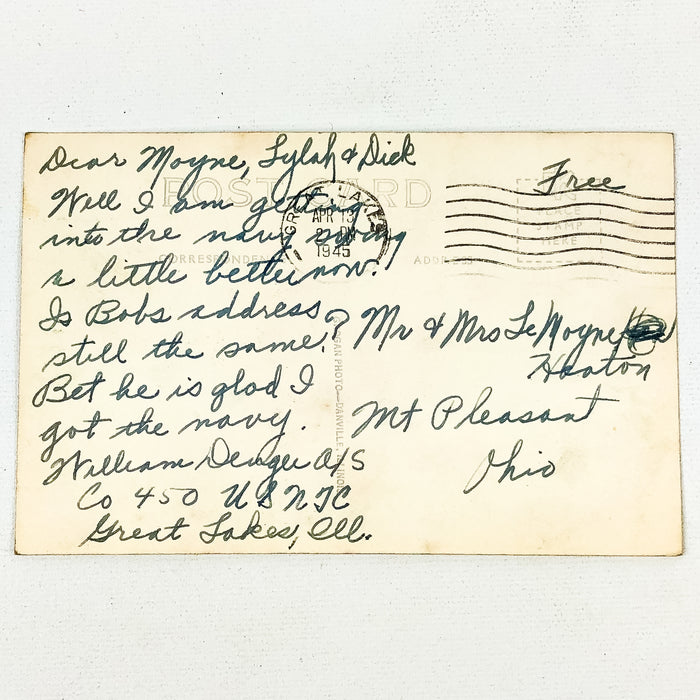 Dear Moyne, Lylah & Dick
Well I am getting
into the navy swing
a little better now.
Is Bobs address
still the same?
Bet he is glad I
got the navy.
William A/S
Co 450 USNTC
Great Lakes, Ill.
POST CARD
CORRESPONDENCE
ADDRESS
GREAT LAKES
APR 13
2 PM
1945
Free
PLACE
STAMP
HERE
Mr & Mrs LeMoyne
Heaton
Mt Pleasant
Ohio
PHOTO—DANVILLE, ILLINOIS